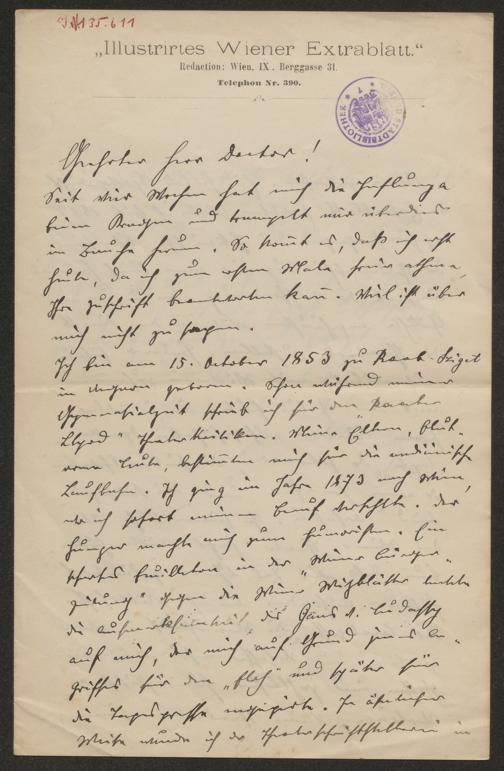 I.N. 135.611
„Illustrirtes Wiener Extrablatt.“
Redaction: Wien, IX. Berggasse 31.
Telephon Nr. 390.
STADTBIBLIOTHEK
Geehrter Herr Doctor!
Seit vier Wochen hat mich die Influenza
beim Kragen und trampelt mir überdies
im Bauche herum. So kommt es, daß ich erst
heute, da ich zum ersten Male frei athme,
Ihre Zuschrift beantworten kann. Viel ist über
mich nicht zu sagen.
Ich bin am 15. October 1853 zu Raab-Sziget
in Ungarn geboren. Schon während meiner
Gymnasialzeit schrieb ich für den „Raaber
Lloyd“ Theaterkritiken. Meine Eltern, blut-
arme Leute, bestimmten mich für die medicinische
Laufbahn. Ich ging im Jahre 1873 nach Wien,
wo ich sofort meinen Beruf verfehlte. Der
Hunger machte mich zum Humoristen. Ein
scharfes Feuilleton in der „Wiener Bürger-
zeitung“ gegen die Wiener Witzblätter lenkte
die Aufmerksamkeit des v. Ludassy
auf mich, der mich auf Grund jenes An-
griffes für den „Floh“ und später für
die Tagespresse engagirte. In ähnlicher
Weise wurde ich der Theaterschriftstellerei in